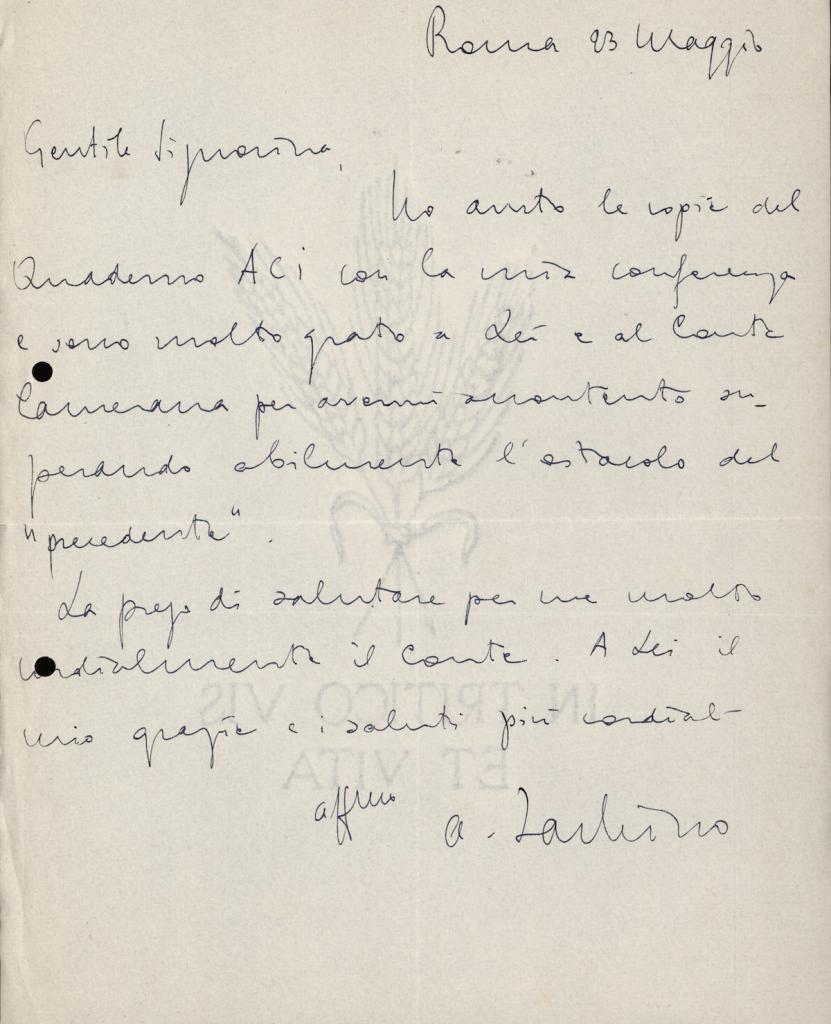 Roma 23 Maggio
Gentile Signorina,
ho avuto le copie del
Quaderno ACI con la mia conferenza
e sono molto grato a Lei e al Conte
Camerana per avermi accontentato su-
perando abilmente l'ostacolo del
"precedente".
La prego di salutare per me molto
cordialmente il Conte. A Lei il
mio grazie e i saluti più cordiali
aff.mo A.
IN TRITICO VIS
ET VITA